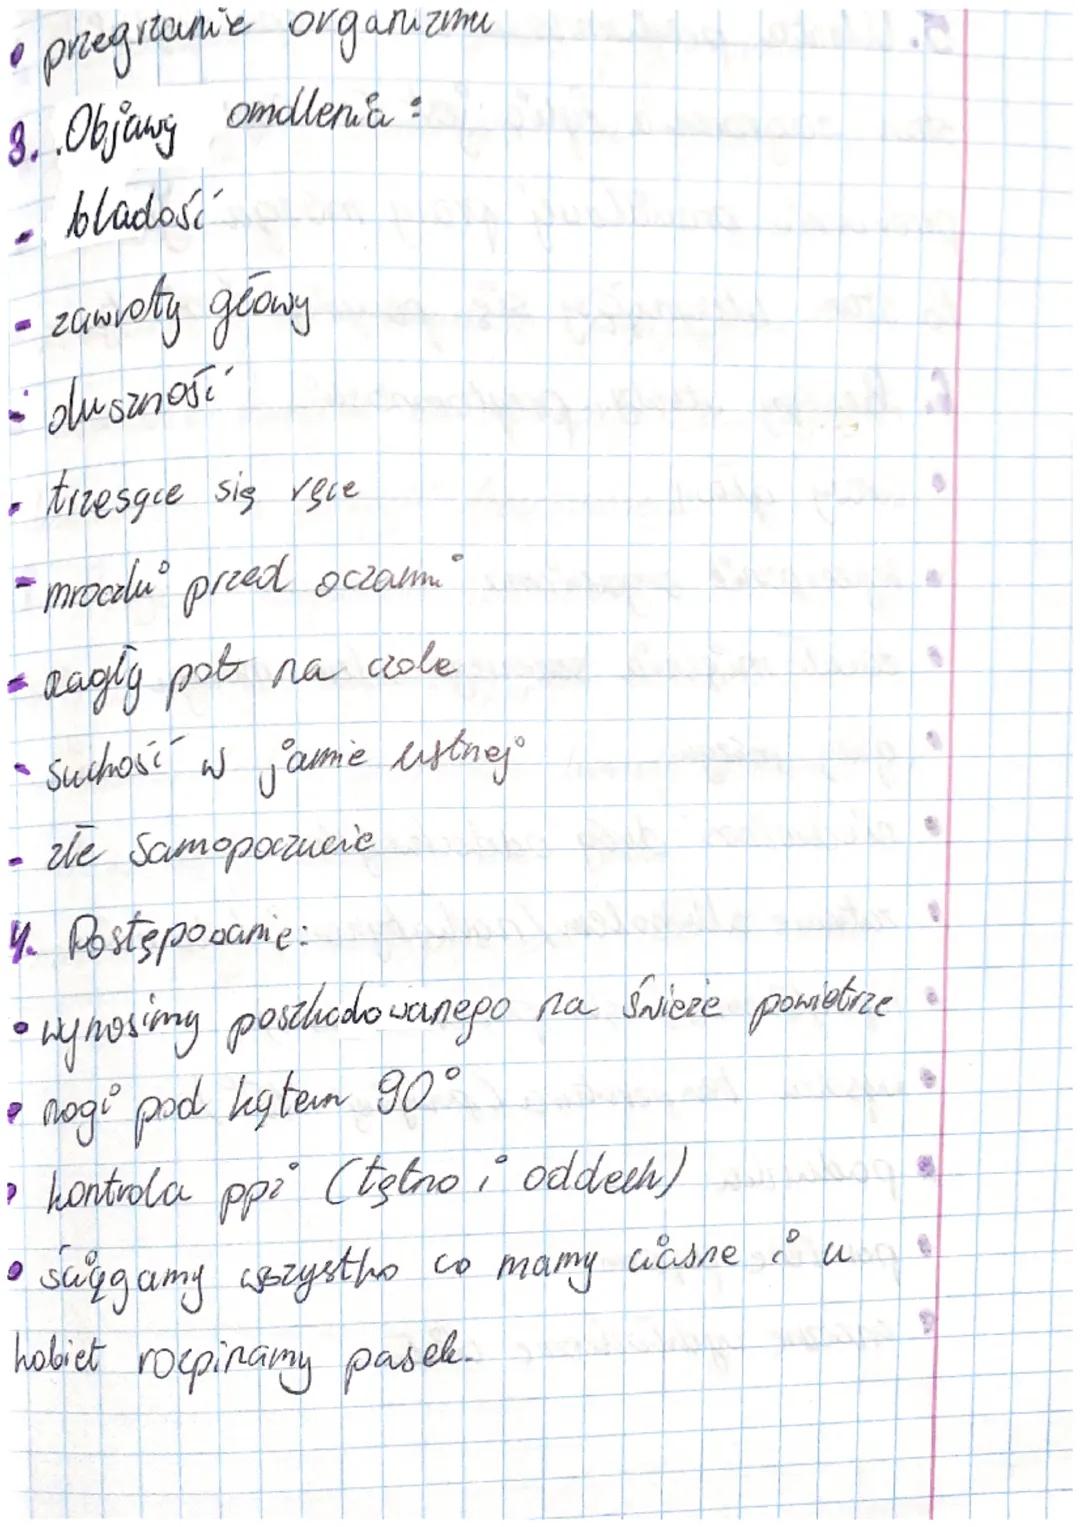 • przegrzanie organizmu
3. Objawy omdlenia:
- bladość
- zawroty głowy
- duszność
- trzesące się ręce
- mroczki przed oczami
- nagły pot na czole
- suchość w jamie ustnej
- złe samopoczucie
4. Postępowanie:
• wynosimy poszkodowanego na świeże powietrze
• nogi pod kątem 90°
• kontrola ppż (tętno i oddech)
• ściągamy wszystko co mamy ciasne i u
kobiet rozpinamy pasek.